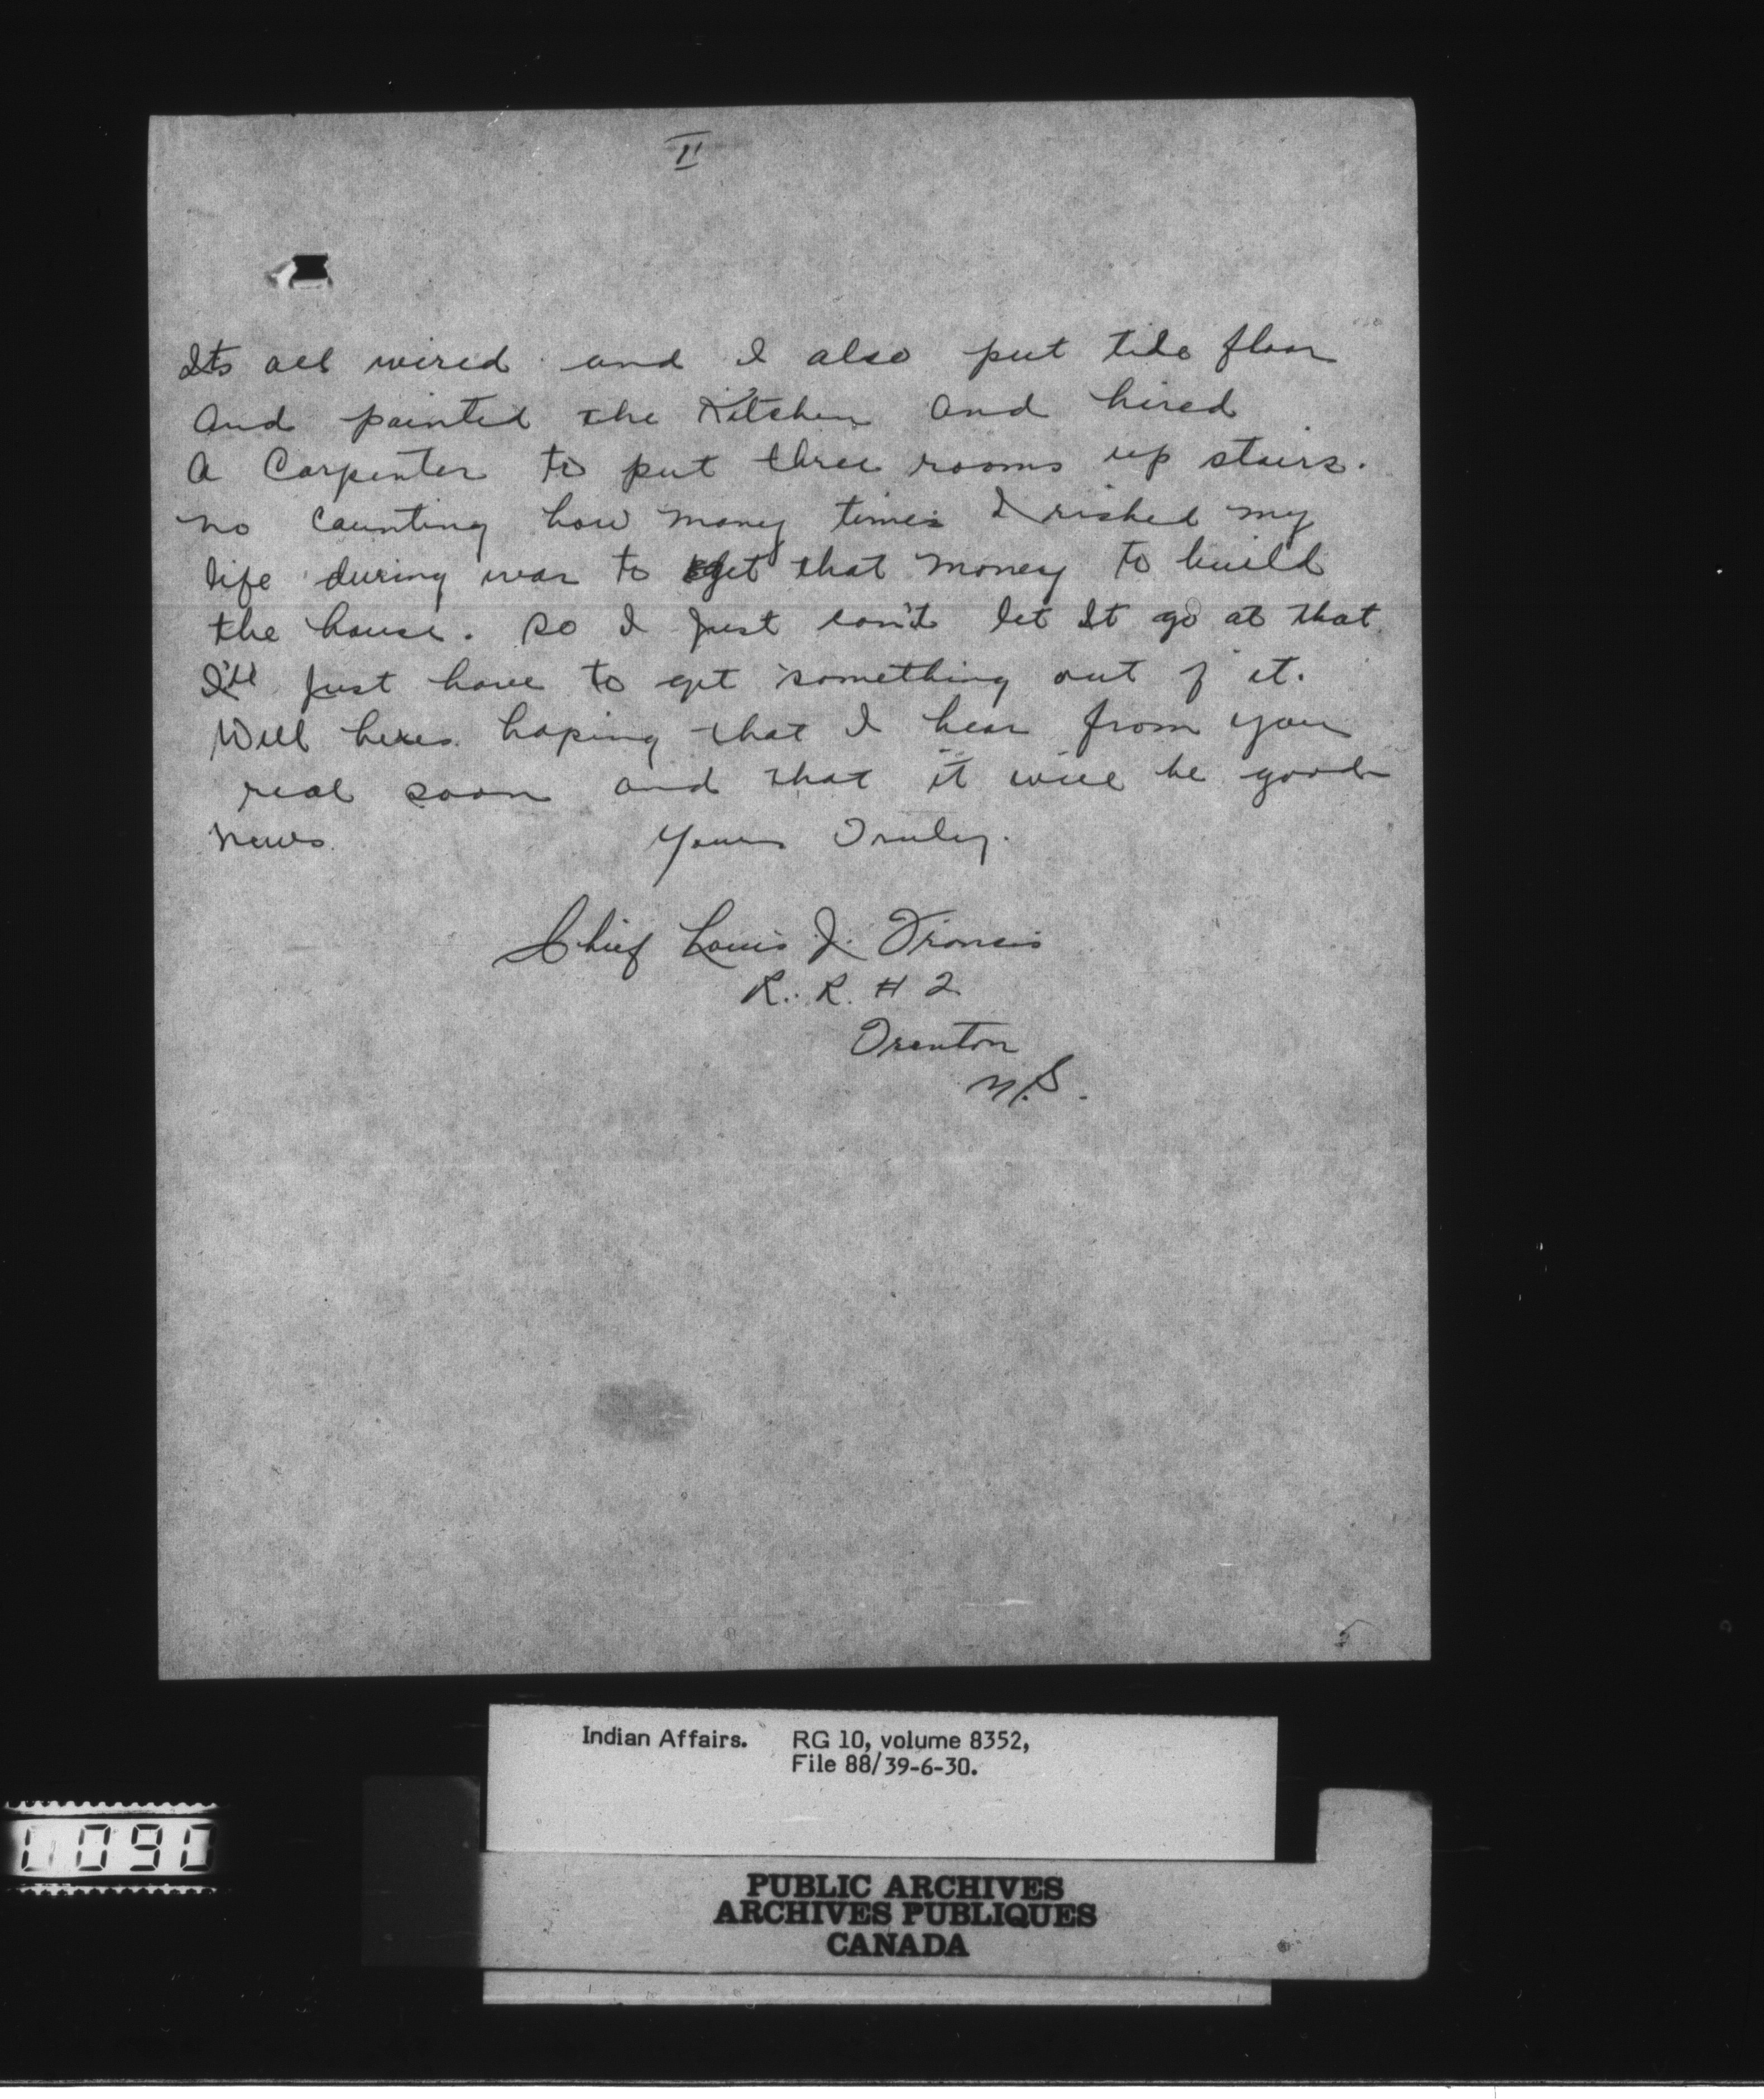 II
Its all wired and I also put tile floor
And painted the Kitchen and hired
A Carpenter to put three rooms up stairs.
no counting how many times I risked my
life during war to get that money to build
the house. so I just can't let It go at that
I'll just have to get something out of it.
Well heres hoping that I hear from you
real soon and that it will be good
news. Yours Truly.
Chief Louis J. Francis
R. R. # 2
Trenton
N.S.
Indian Affairs. RG 10, volume 8352,
File 88/39-6-30.
0090
PUBLIC ARCHIVES
ARCHIVES PUBLIQUES
CANADA